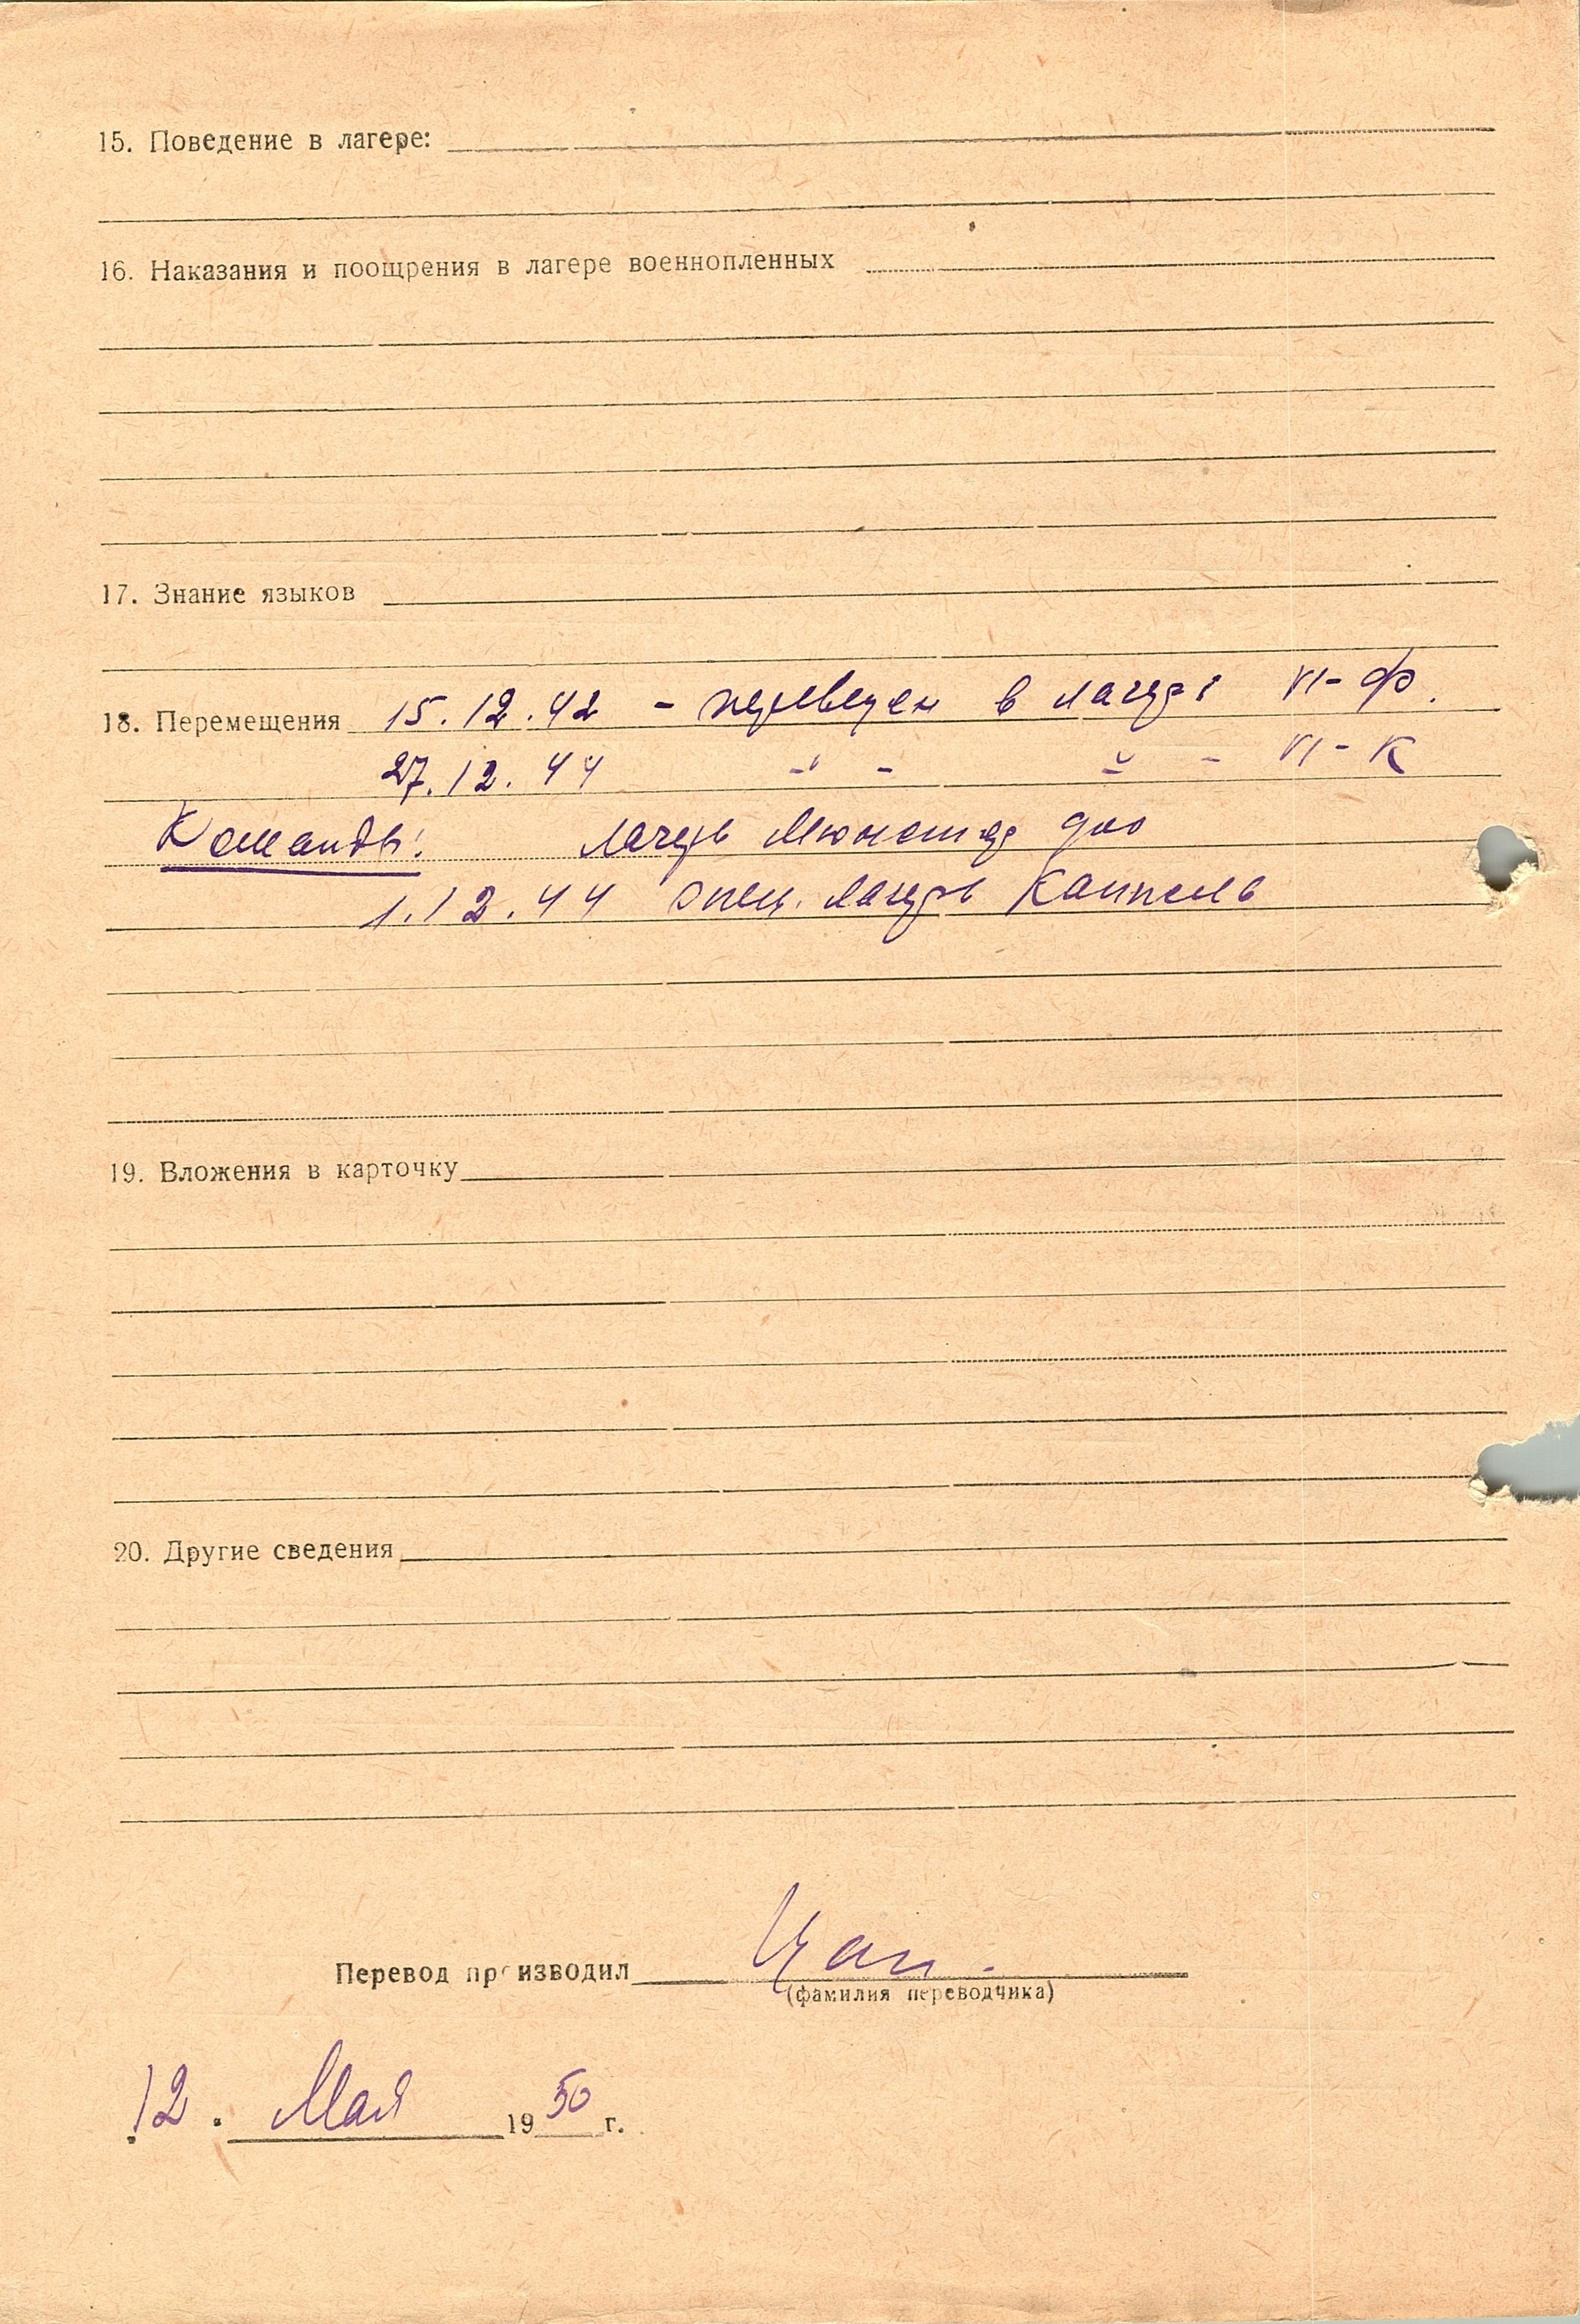 15. Поведение в лагере:
16. Наказания и поощрения в лагере военнопленных
17. Знание языков
18. Перемещения 15.12.42 - переведен в лагерь VI-Ф.
27.12.44 -"- -"- VI-К
Команды: лагерь Мюнстер
1.12.44 спец. лагерь Каппель
19. Вложения в карточку
20. Другие сведения
Перевод производил
(фамилия переводчика)
12. Мая 1950 г.